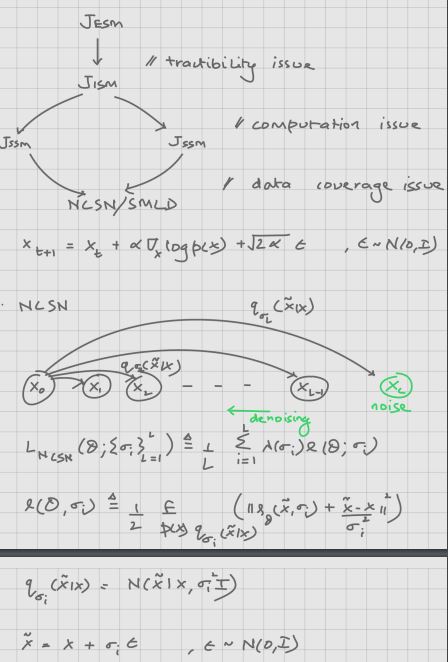 JESM
// tractibility issue
JISM
// computation issue
JSSM JSSM
/ data coverage issue
NCSN/SMLD
x_{t+1} = x_t + α ∇_x log p(x) + √2α ϵ , ϵ ~ N(0,I)
. NCSN
q_{σ_L}(x̃|x)
q_{σ_2}(x̃|x)
x_0 x_1 x_2 - - - x_{L-1} x_L
denoising noise
L_{NCSN}(θ;{σ_i}_{L=1}^L) ≜ 1/L Σ_{i=1}^L λ(σ_i) ℓ(θ; σ_i)
ℓ(θ, σ_i) ≜ 1/2 E_{p(x) q_{σ_i}(x̃|x)} (‖s_θ(x̃,σ_i) + (x̃-x)/σ_i^2‖^2)
q_{σ_i}(x̃|x) = N(x̃|x, σ_i^2 I)
x̃ = x + σ_i ϵ , ϵ ~ N(0,I)